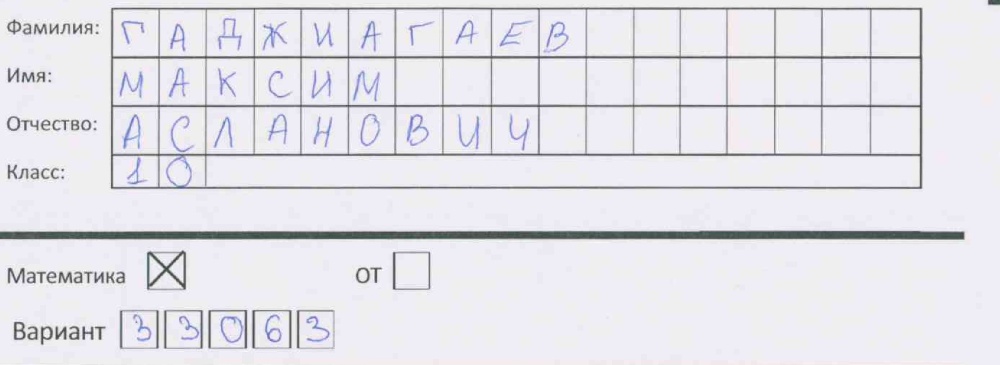 Фамилия: ГАДЖИАГАЕВ
Имя: МАКСИМ
Отчество: АСЛАНОВИЧ
Класс: 10
Математика ОТ
Вариант 33063